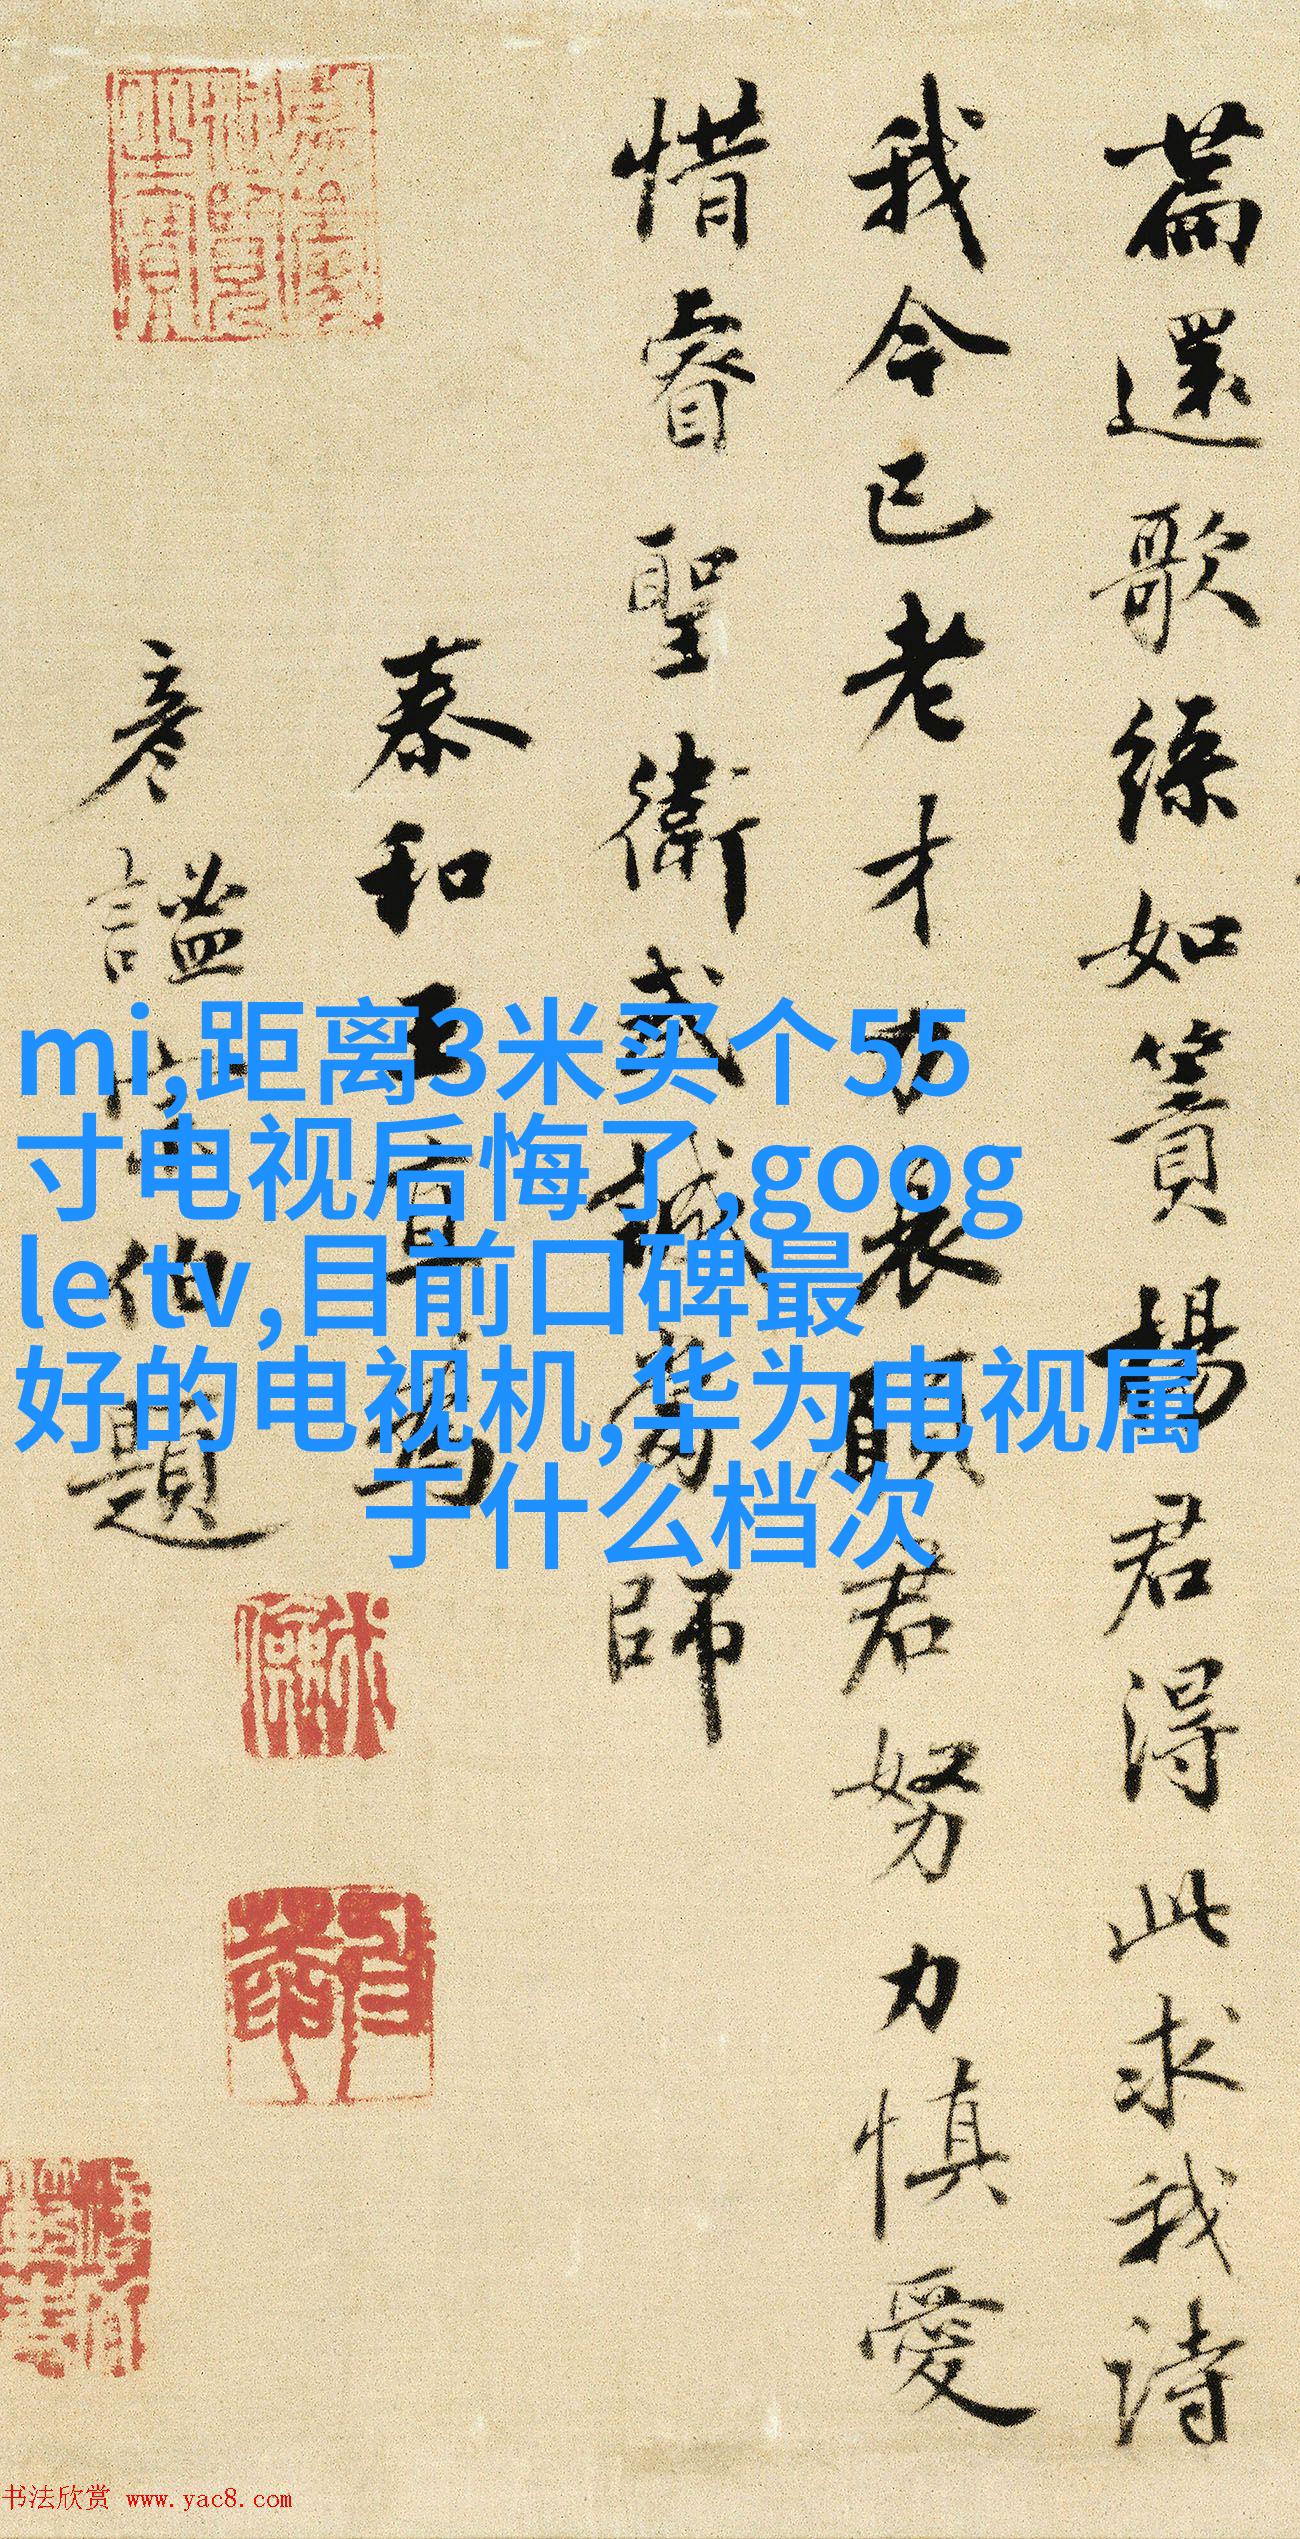 篇還歌綠如簀揚君得此求我詩
我今已老才力衰願君努力慎愛
惜睿聖衛武誠為師
泰和王直為
彥謐宗伯題
mi,距离3米买个55
寸电视后悔了,goog
le tv,目前口碑最
好的电视机,华为电视属
于什么档次
书法欣赏 www.yac8.com